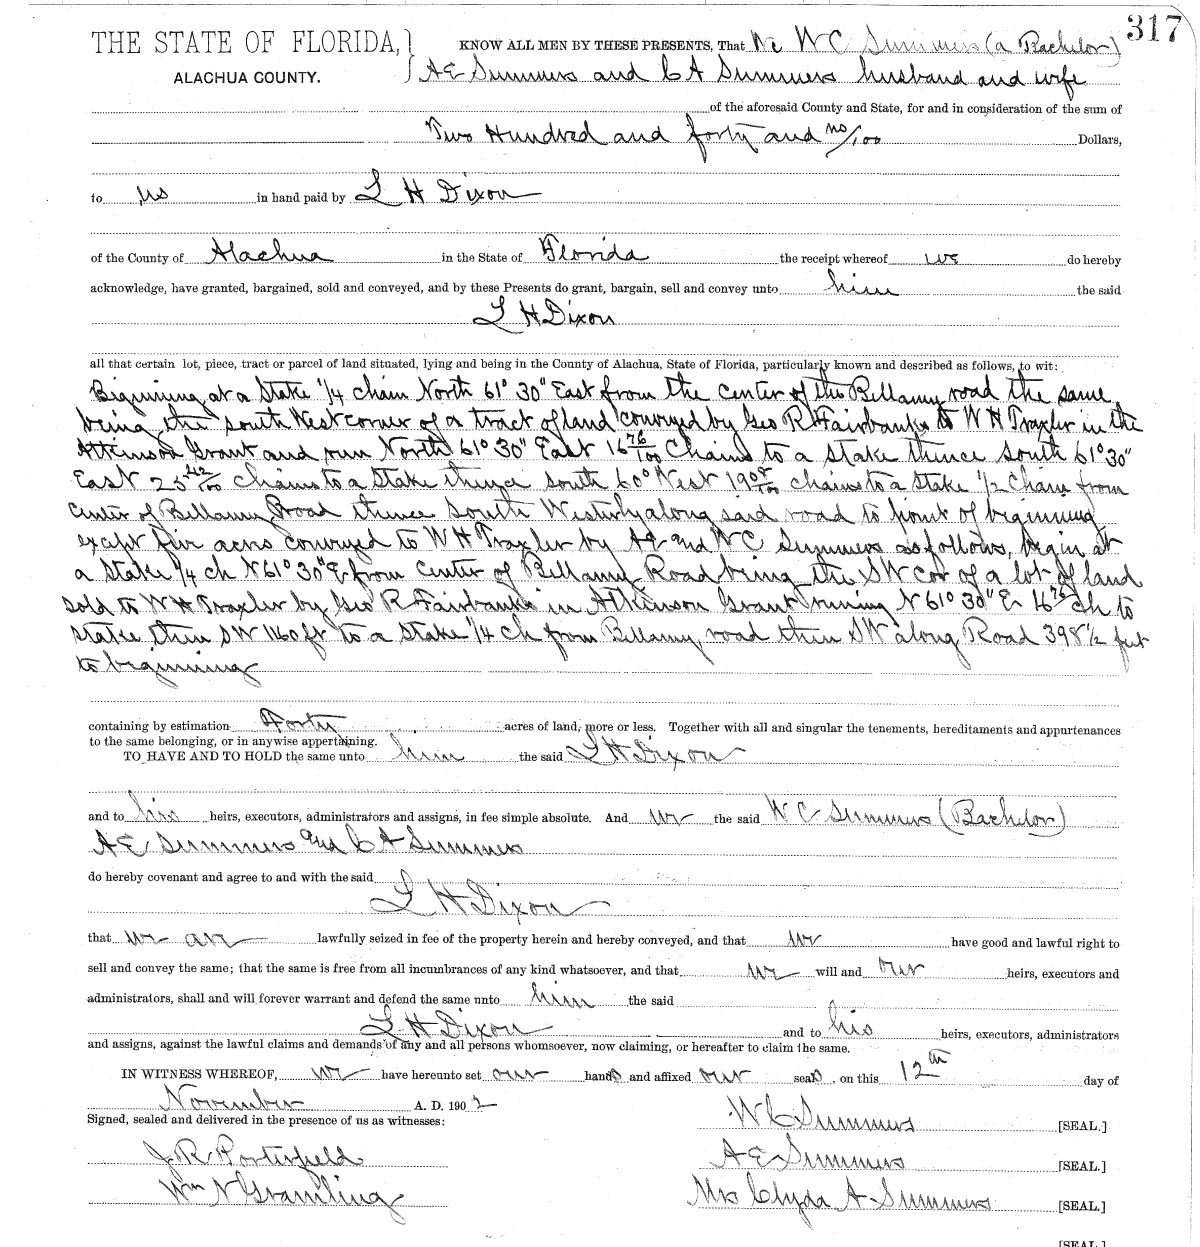 317
THE STATE OF FLORIDA, KNOW ALL MEN BY THESE PRESENTS, That We W C Summers (a Bachelor)
ALACHUA COUNTY. A E Summers and C A Summers husband and wife
of the aforesaid County and State, for and in consideration of the sum of
Two Hundred and forty and no/100 Dollars,
to us in hand paid by L H Dixon
of the County of Alachua in the State of Florida the receipt whereof we do hereby
acknowledge, have granted, bargained, sold and conveyed, and by these Presents do grant, bargain, sell and convey unto him the said
L H Dixon
all that certain lot, piece, tract or parcel of land situated, lying and being in the County of Alachua, State of Florida, particularly known and described as follows, to wit:
Biginning at a Stake 1/4 chain North 61° 30" East from the center of the Bellamy road the same
being the south West corner of a tract of land conveyed by Geo R Fairbanks to W H Traxler in the
Atkinson Grant and run North 61° 30" East 16 76/100 Chains to a stake thence south 61° 30"
East 25 42/100 chains to a Stake thence south 60° West 19 chains to a Stake 1/2 Chain from
Center of Bellamy Road thence South Westerly along said road to point of beginning
except five acres conveyed to W H Traxler by A E and W C Summers as follows, begin at
a Stake 1/4 ch N 61° 30" E from Center of Bellamy Road being the SW cor of a lot of land
sold to W H Traxler by Geo R Fairbanks in Atkinson Grant runing N 61° 30" E 16 76 ch to
stake then SW 1160 ft to a Stake 1/4 ch from Bellamy road then SW along Road 398 1/2 feet
to beginning
containing by estimation Forty acres of land, more or less. Together with all and singular the tenements, hereditaments and appurtenances
to the same belonging, or in anywise appertaining.
TO HAVE AND TO HOLD the same unto him the said L H Dixon
and to his heirs, executors, administrators and assigns, in fee simple absolute. And we the said W C Summers (Bachelor)
A E Summers and C A Summers
do hereby covenant and agree to and with the said
L H Dixon
that we are lawfully seized in fee of the property herein and hereby conveyed, and that we have good and lawful right to
sell and convey the same; that the same is free from all incumbrances of any kind whatsoever, and that we will and our heirs, executors and
administrators, shall and will forever warrant and defend the same unto him the said
L H Dixon and to his heirs, executors, administrators
and assigns, against the lawful claims and demands of any and all persons whomsoever, now claiming, or hereafter to claim the same.
IN WITNESS WHEREOF, we have hereunto set our hands and affixed our seals, on this 12th day of
November A. D. 1902
Signed, sealed and delivered in the presence of us as witnesses:
W C Summers [SEAL.]
J R Porterfield A E Summers [SEAL.]
Wm N Gramling Mrs Clyda A Summers [SEAL.]
[SEAL.]